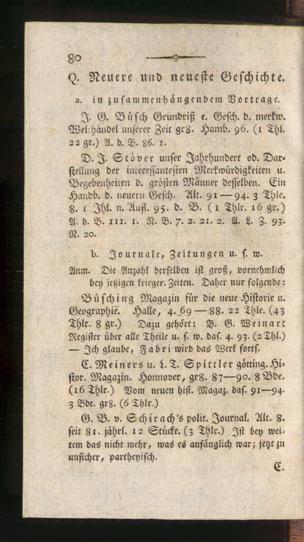 80
Q. Neuere und neueste Geschichte.
a. in zusammenhängendem Vortrage.
J. G. Büsch Grundriß e. Gesch. d. merkw.
Welthändel unserer Zeit gr8. Hamb. 96. (1 Thl.
22 gr.) A. d. B. 86. 1.
D. J. Stöver unser Jahrhundert od. Dar-
stellung der interessantesten Merkwürdigkeiten u.
Begebenheiten d. grösten Männer desselben. Ein
Handb. d. neuern Gesch. Alt. 91—94. 3 Thle.
8. 1 Thl. n. Aufl. 95. d. B. (1 Thlr. 16 gr.)
A. d. B. 111. 1. N. B. 7. 2. 21. 2. A. L. Z. 93.
N. 20.
b. Journale, Zeitungen u. s. w.
Anm. Die Anzahl derselben ist groß, vornehmlich
bey jetzigen krieger. Zeiten. Daher nur folgende:
Büsching Magazin für die neue Historie u.
Geographie. Halle, 4. 69—88. 22 Thle. (43
Thlr. 8 gr.) Dazu gehört: B. G. Weinart
Register über alle Theile u. s. w. das. 4. 93. (2 Thl.)
— Ich glaube, Fabri wird das Werk forts.
C. Meiners u. L. T. Spittler götting. Hi-
stor. Magazin. Hannover, gr8. 87—90. 8 Bde.
(16 Thlr.) Vom neuen hist. Magaz. das. 91—94.
3 Bde. gr8. (6 Thlr.)
G. B. v. Schirach's polit. Journal. Alt. 8.
seit 81. jährl. 12 Stücke. (3 Thlr.) Ist bey wei-
tem das nicht mehr, was es anfänglich war; jetzt zu
unsicher, partheyisch.
C.